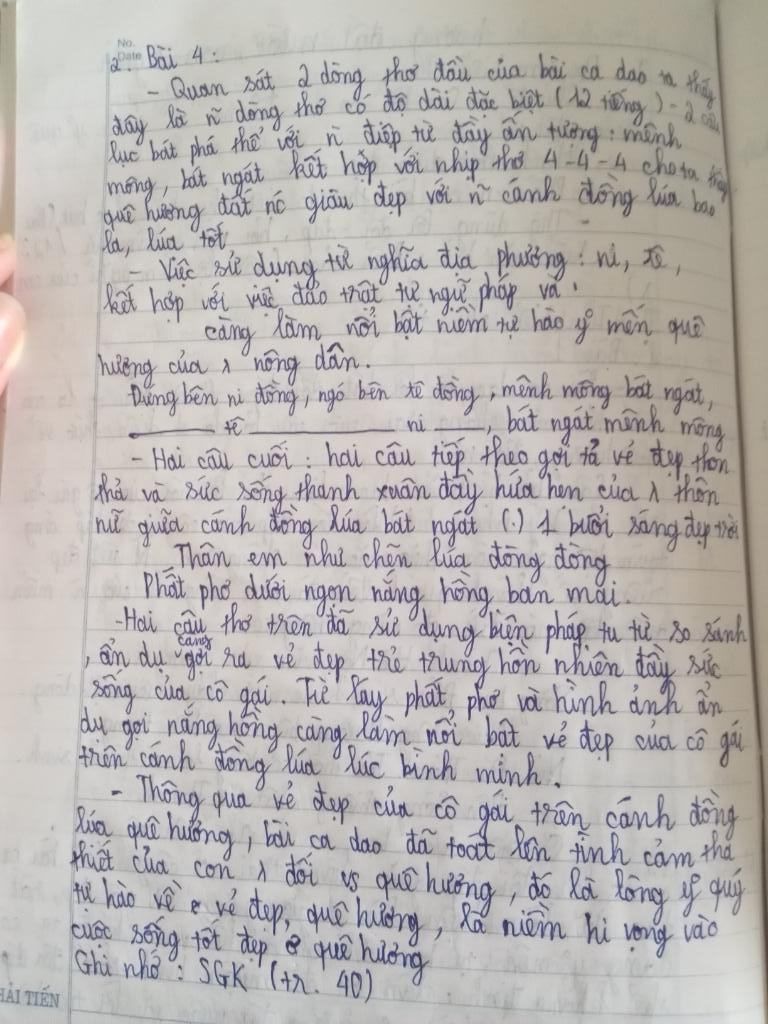 No.
Date
2. Bài 4:
- Quan sát 2 dòng thơ đầu của bài ca dao ta thấy
đây là ñ dòng thơ có độ dài đặc biệt (12 tiếng) - 2 câu
lục bát phá thể với ñ điệp từ đầy ấn tượng: mênh
mông, bát ngát kết hợp với nhịp thơ 4-4-4 cho ta thấy
quê hương đất nc giàu đẹp với ñ cánh đồng lúa bao
la, lúa tốt
- Việc sử dụng từ nghĩa địa phương: ni, tê,
kết hợp với việc đảo trật tự ngữ pháp và
càng làm nổi bật niềm tự hào y mến quê
hương của λ nông dân.
Đứng bên ni đồng, ngó bên tê đồng, mênh mông bát ngát,
tê ni , bát ngát mênh mông
- Hai câu cuối: hai câu tiếp theo gợi tả vẻ đẹp thon
thả và sức sống thanh xuân đầy hứa hẹn của λ thôn
nữ giữa cánh đồng lúa bát ngát (.) 1 buổi sáng đẹp trời
Thân em như chẽn lúa đòng đòng
Phất phơ dưới ngọn nắng hồng ban mai.
- Hai câu thơ trên đã sử dụng biện pháp tu từ so sánh
, ẩn dụ càng gợi ra vẻ đẹp trẻ trung hồn nhiên đầy sức
sống của cô gái. Từ láy phất phơ và hình ảnh ẩn
dụ gọi nắng hồng càng làm nổi bật vẻ đẹp của cô gái
trên cánh đồng lúa lúc bình minh.
- Thông qua vẻ đẹp của cô gái trên cánh đồng
lúa quê hương, bài ca dao đã toát lên tình cảm tha
thiết của con λ đối vs quê hương, đó là lòng y quý
tự hào về vẻ đẹp, quê hương, là niềm hi vọng vào
cuộc sống tốt đẹp ở quê hương
Ghi nhớ: SGK (tr. 40)
HẢI TIẾN